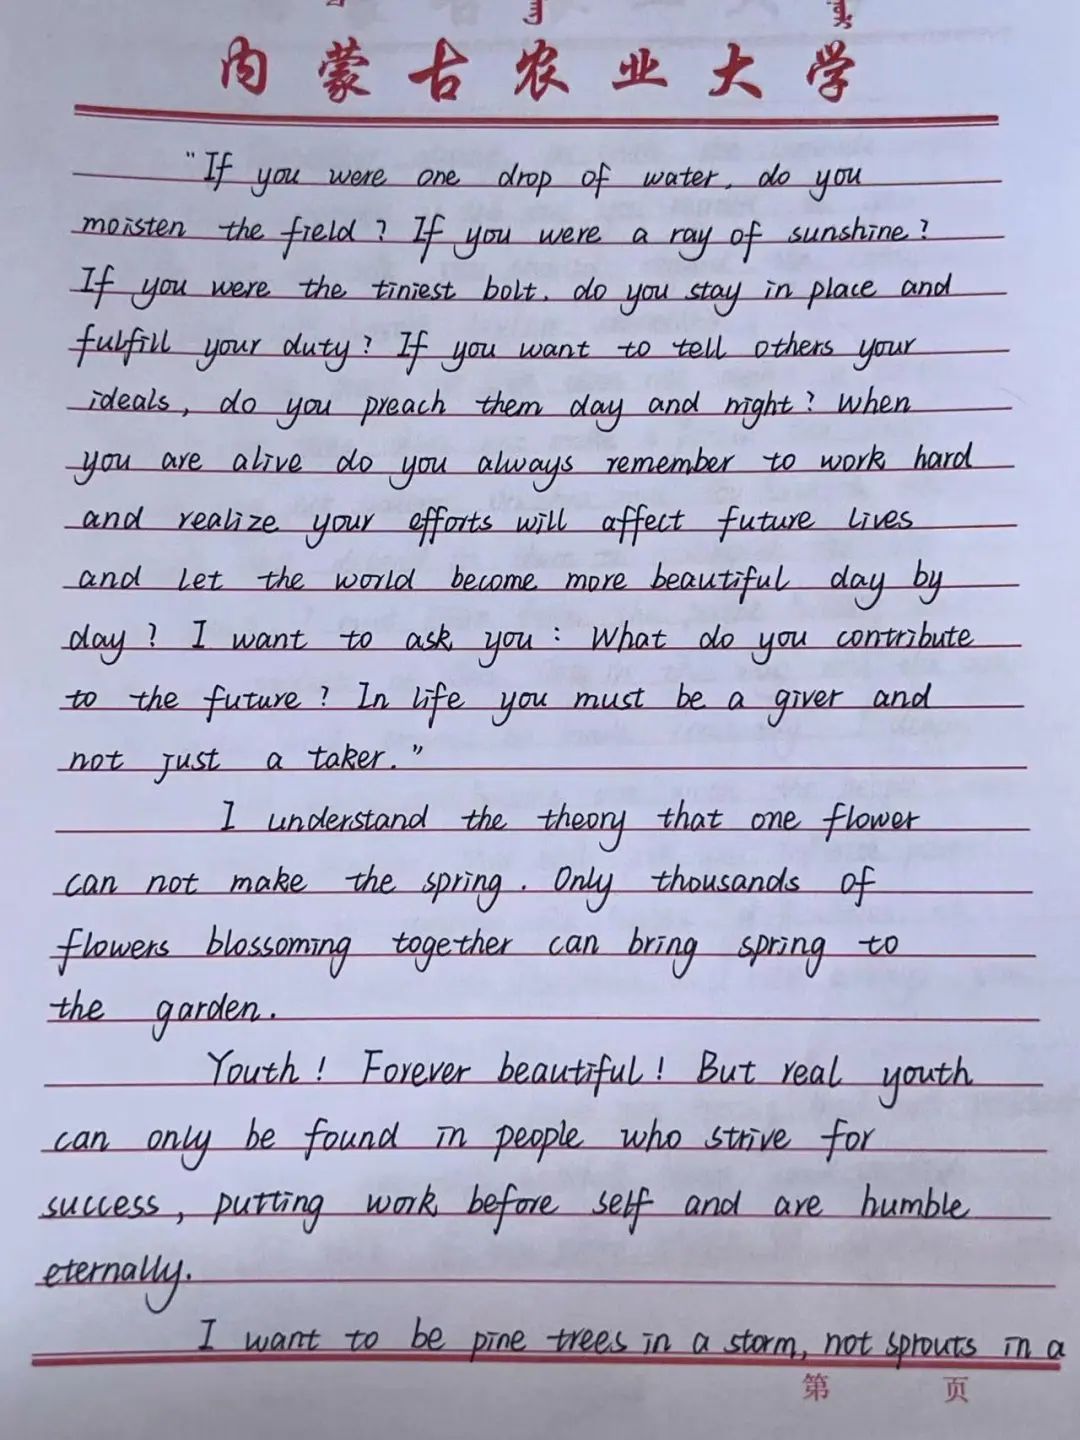 内蒙古农业大学
"If you were one drop of water, do you
moisten the field? If you were a ray of sunshine?
If you were the tiniest bolt, do you stay in place and
fulfill your duty? If you want to tell others your
ideals, do you preach them day and night? When
you are alive do you always remember to work hard
and realize your efforts will affect future lives
and let the world become more beautiful day by
day? I want to ask you: What do you contribute
to the future? In life you must be a giver and
not just a taker."
I understand the theory that one flower
can not make the spring. Only thousands of
flowers blossoming together can bring spring to
the garden.
Youth! Forever beautiful! But real youth
can only be found in people who strive for
success, putting work before self and are humble
eternally.
I want to be pine trees in a storm, not sprouts in a
第 页